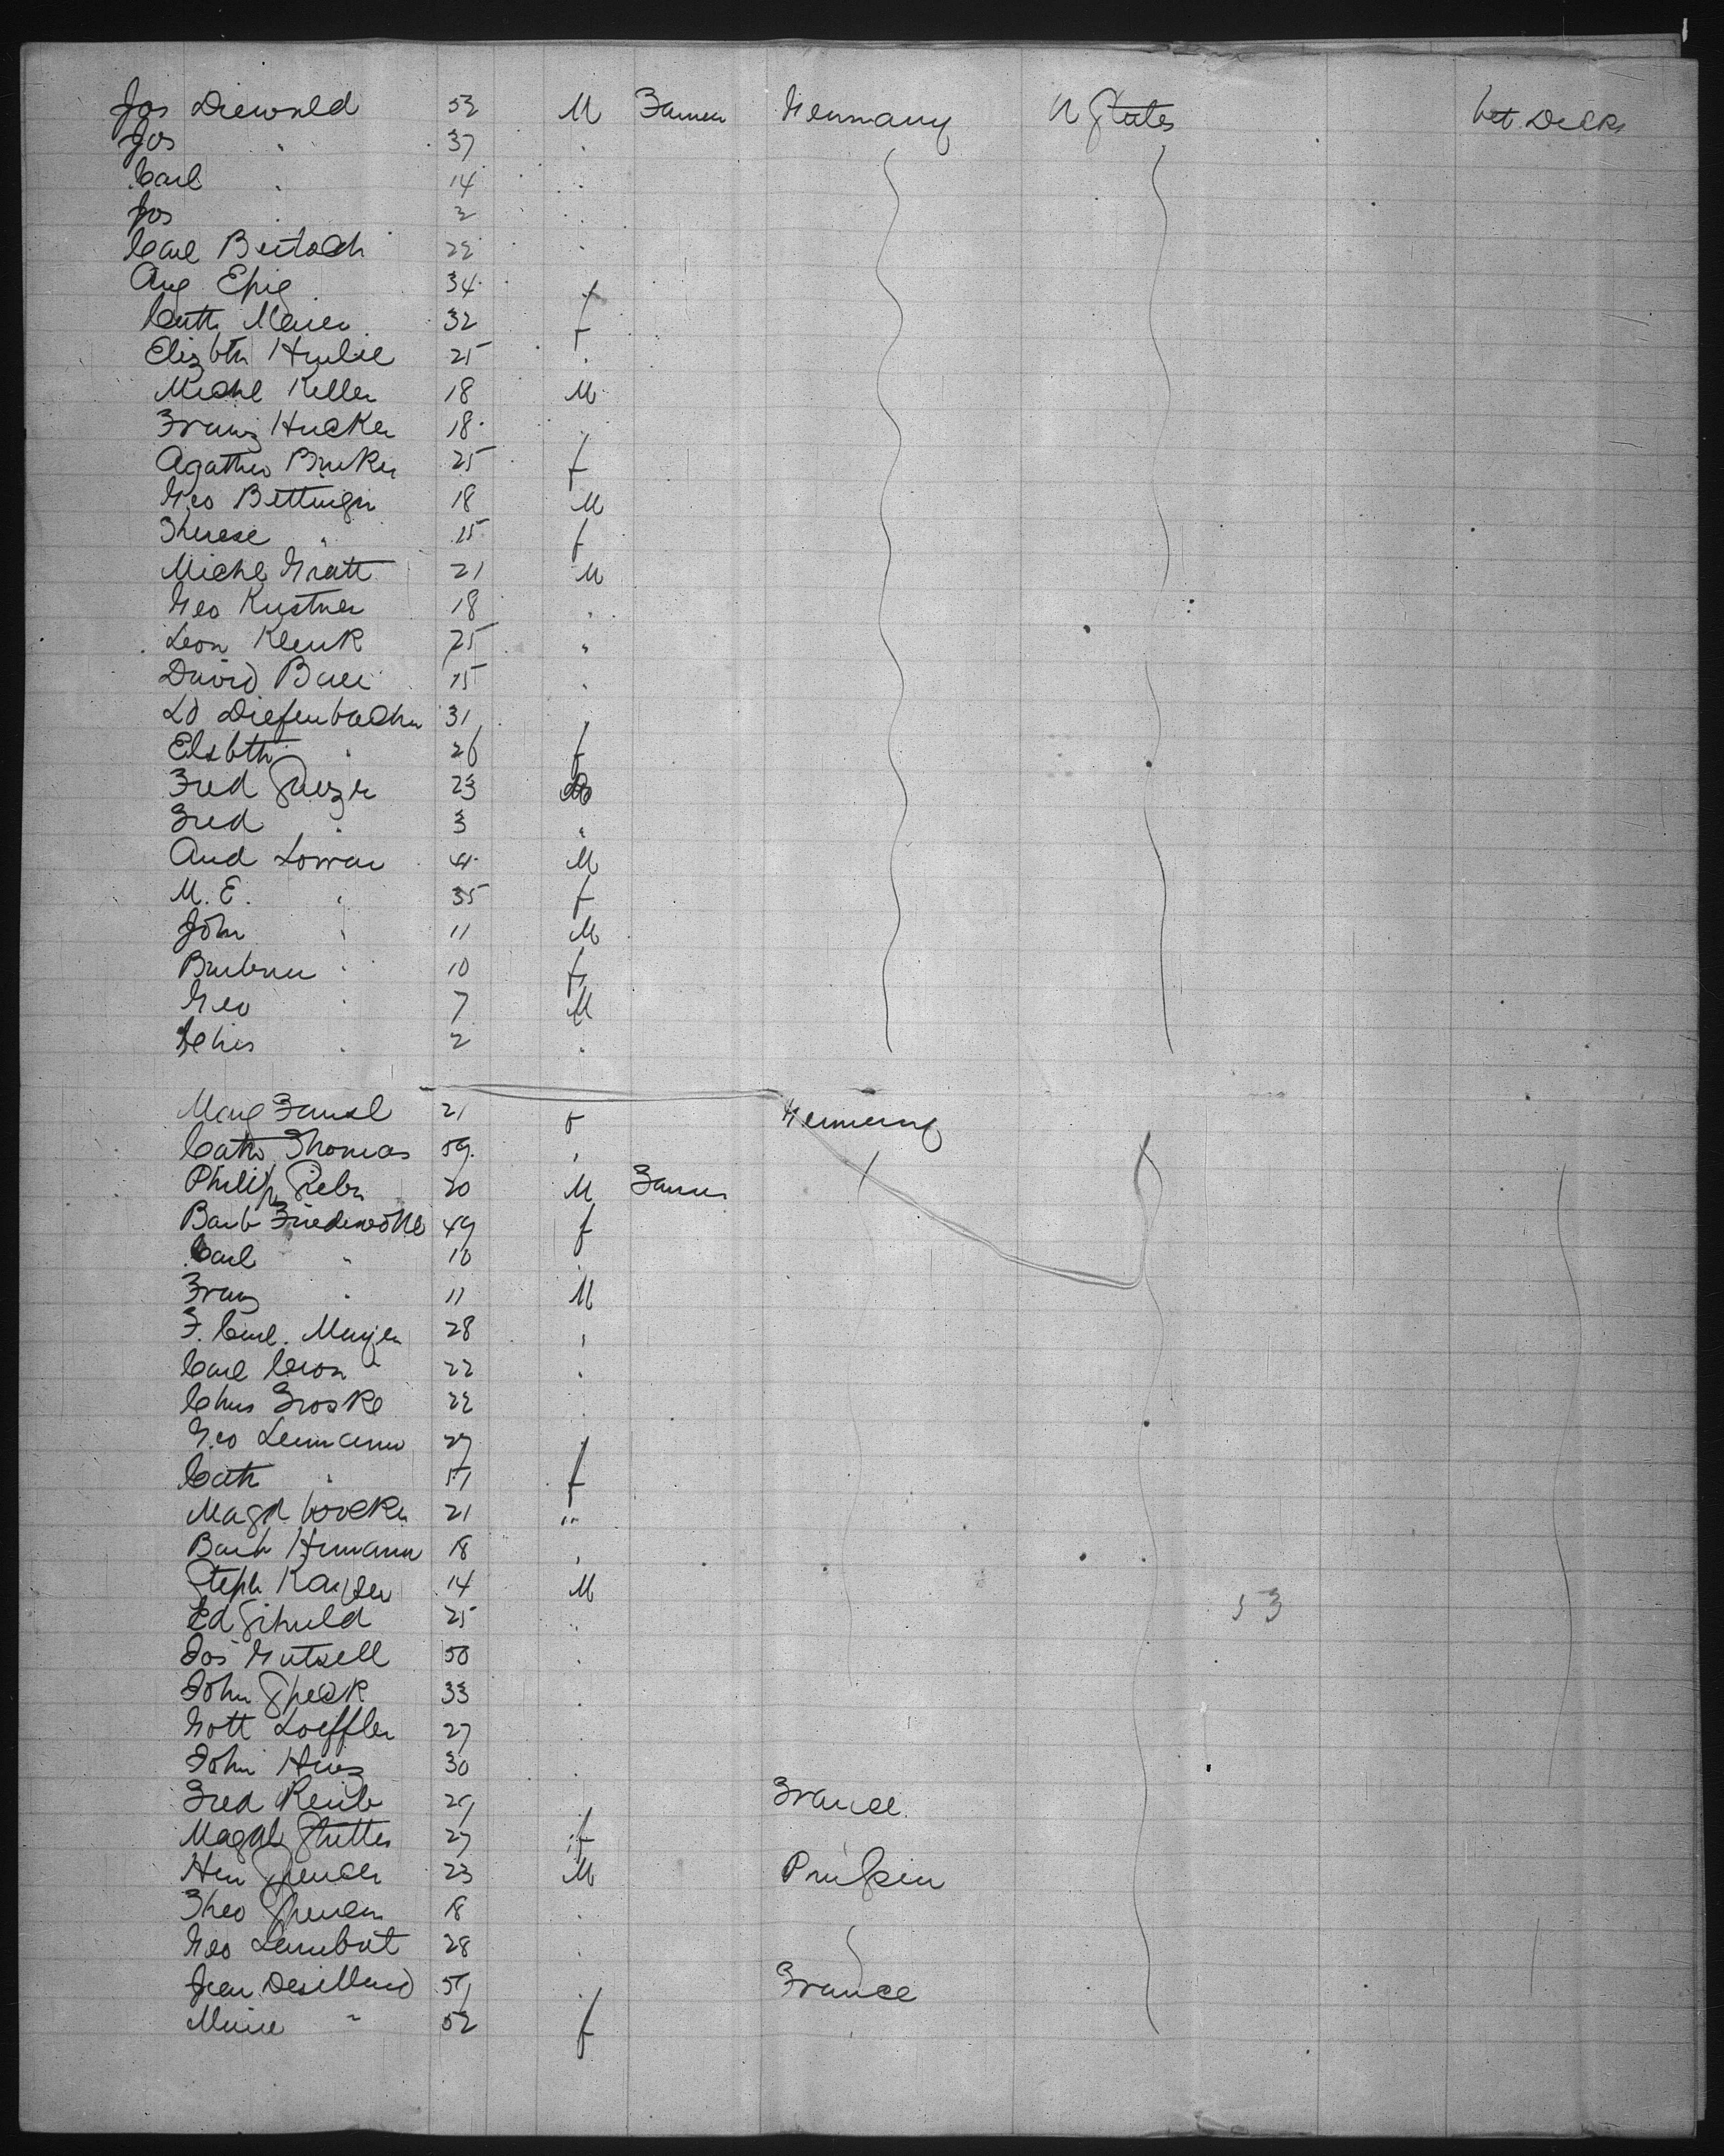 Jos Diewald 53 M Farmer Germany U States bet. Decks
Jos " 37 "
Carl " 14 "
Jos " 2 "
Carl 22 "
Aug Epig 34 f
Cath Meier 32 f
Elizbth 25 "
Michl Keller 18 M
Franz Hucker 18 "
Agatha 25 f
Geo Bettinger 18 M
Therese " 15 f
Michl Gratt 21 M
Geo Kustner 18 "
Leon Klenk 25 "
David Baur 15 "
Ld Diefenbacher 31 "
Elsbth " 26 f
Fred 23
Fred " 3 "
And Lorran M
M. E. " 35 f
John " 11 M
Barbara " 10 f
Geo " 7 M
Chris " 2 "
Marg 21 f Germany
Cath Thomas 59 "
Philip Sieber 20 M Farmer
Barb 49 f
Carl " 10 "
Franz " 11 M
F. Carl. Mayer 28 "
Carl Cron 22 "
Chas Froske 22
Geo Leimann 27
Cath " 51 f
Magd 21 "
Barb Hermann 18 "
Steph Kayser 14 M
Ed Schuld 25 " 53
Jos Gutsell 50 "
John Speck 33 "
Gott Loeffler 27
John 30 "
Fred Reub France
Magdl 27 f
Hen Spencer 23 M Prussia
Theo Spencer 18 "
Geo Lambert 28 "
Jean Desillard 59 " France
Marie " 52 f